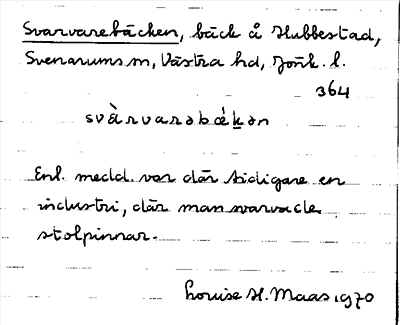 Svarvarebäcken, bäck å Hubbestad,
Svenarums sn, Västra hd, Jönk. l.
364
svàrvarəbǽkən
Enl. medd. var där tidigare en
industri, där man svarvade
stolpinnar.
Louise H. Maas 1970